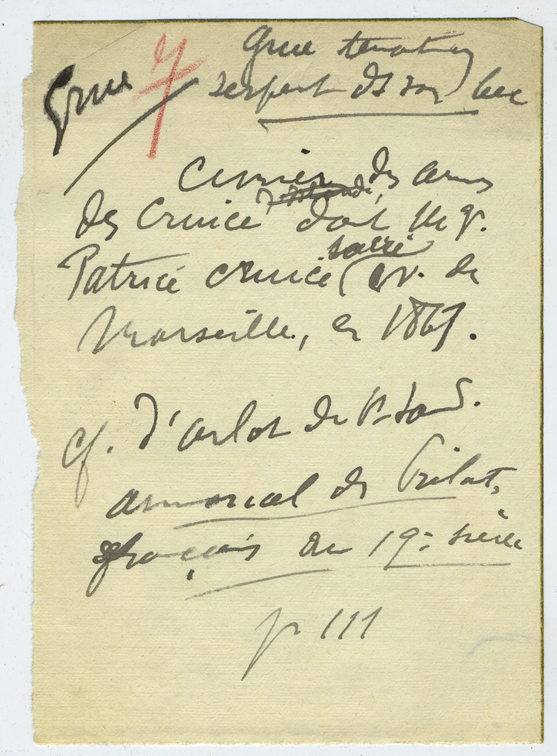 Grue
Grue tenant un
serpent ds son bec
Cimier des armes
des Cruice d'Irlande, dont Mgr.
Patrice Cruice sacré év. de
Marseille, en 1861.
cf. d'Arlot de St Saud.
armorial des Prélats
français du 19e siècle
p 111